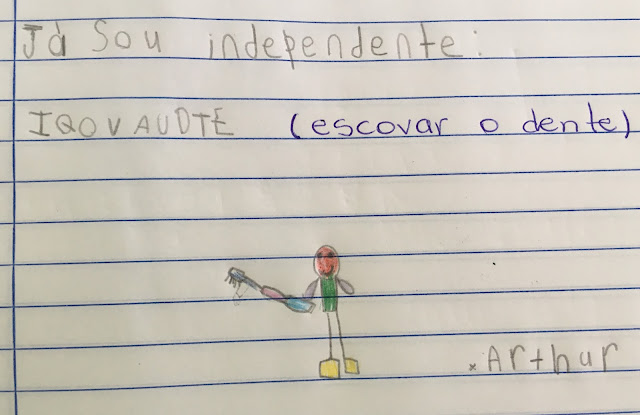 Já Sou independente:
IQOVAUDTE (escovar o dente)
Arthur